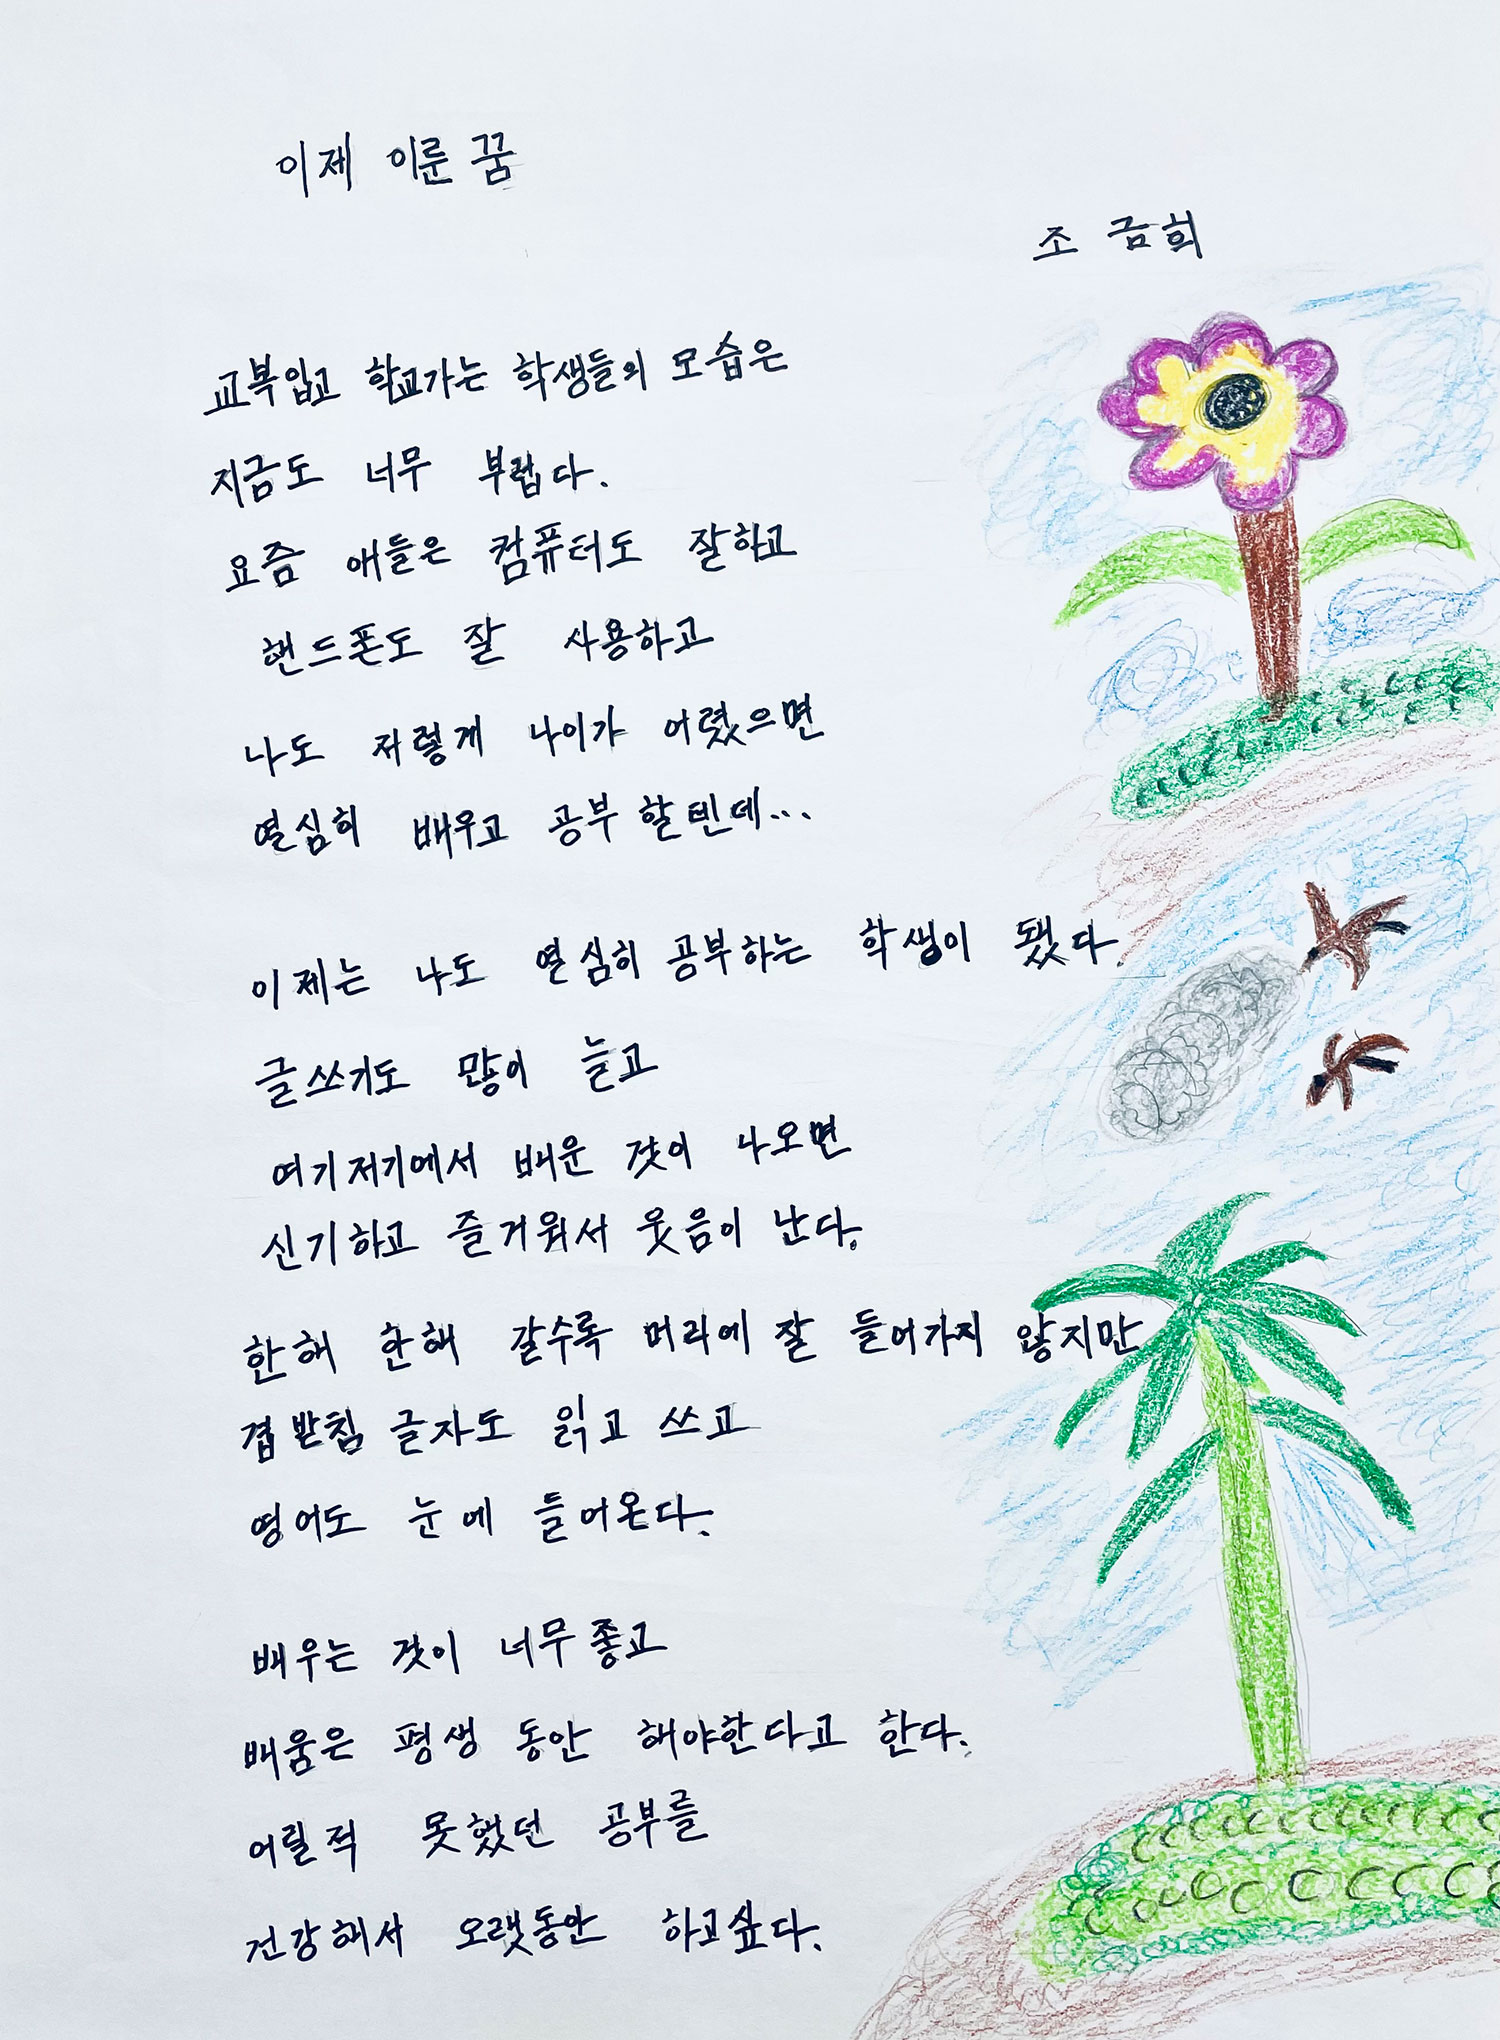 이제 이룬 꿈
조 금희
교복입고 학교가는 학생들의 모습은
지금도 너무 부럽다.
요즘 애들은 컴퓨터도 잘하고
핸드폰도 잘 사용하고
나도 저렇게 나이가 어렸으면
열심히 배우고 공부 할텐데...
이제는 나도 열심히 공부하는 학생이 됐다.
글쓰기도 많이 늘고
여기저기에서 배운 것이 나오면
신기하고 즐거워서 웃음이 난다.
한해 한해 갈수록 머리에 잘 들어가지 않지만
겹받침 글자도 읽고 쓰고
영어도 눈에 들어온다.
배우는 것이 너무 좋고
배움은 평생 동안 해야한다고 한다.
어릴적 못했던 공부를
건강해서 오랫동안 하고싶다.